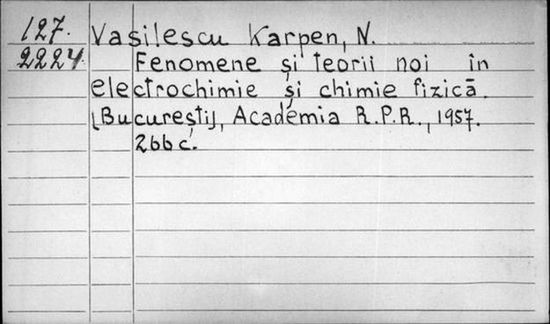 127. Vasilescu Karpen, N.
2224 Fenomene și teorii noi în
electrochimie și chimie fizică.
[București], Academia R.P.R., 1957.
266 c.